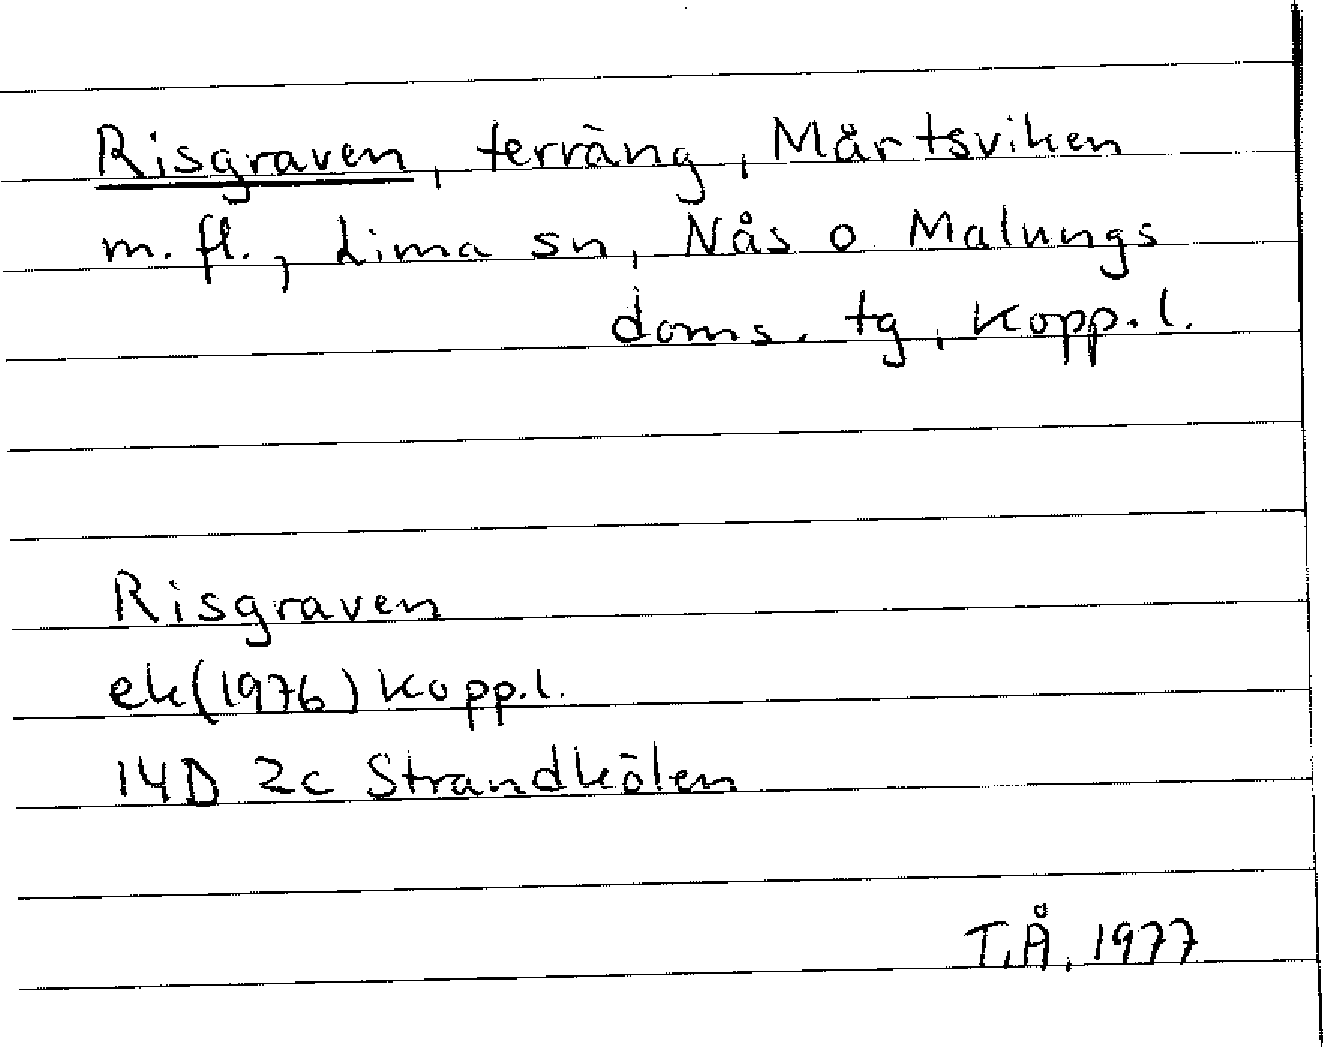 Risgraven, terräng, Mårtsviken
m. fl., Lima sn, Nås o Malungs
doms. tg, Kopp. l.
Risgraven
ek(1976) Kopp.l.
14D 2c Strandkölen
T.Å. 1977